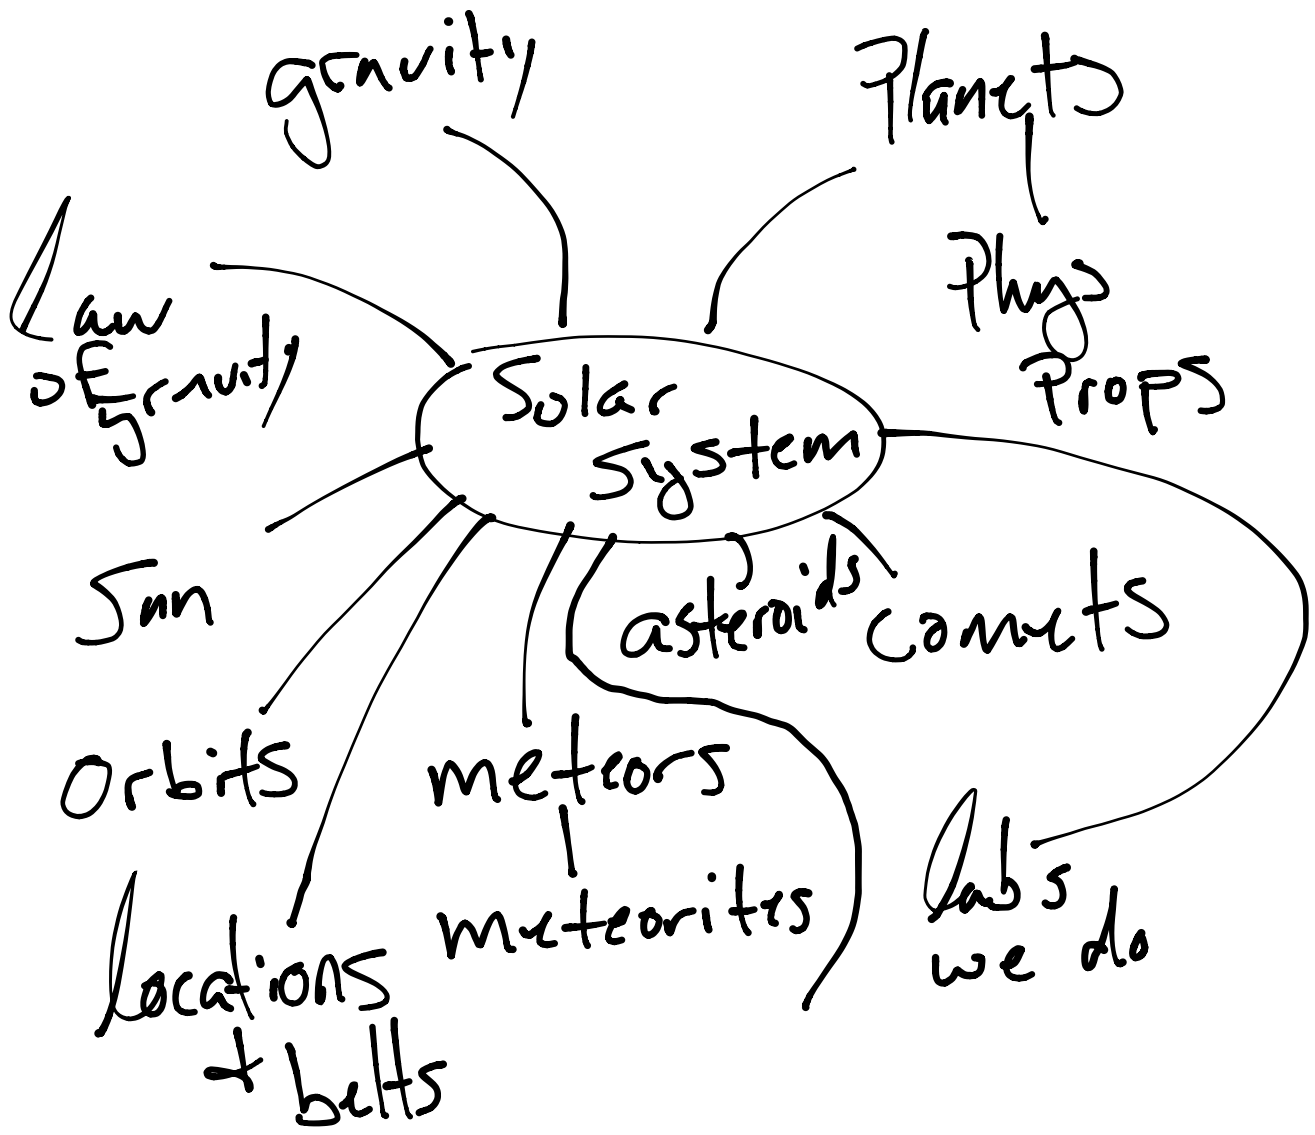 gravity
Planets
Phys
Props
Law
of gravity
Solar
System
Sun
asteroids
comets
Orbits
meteors
meteorites
labs
we do
locations
+ belts